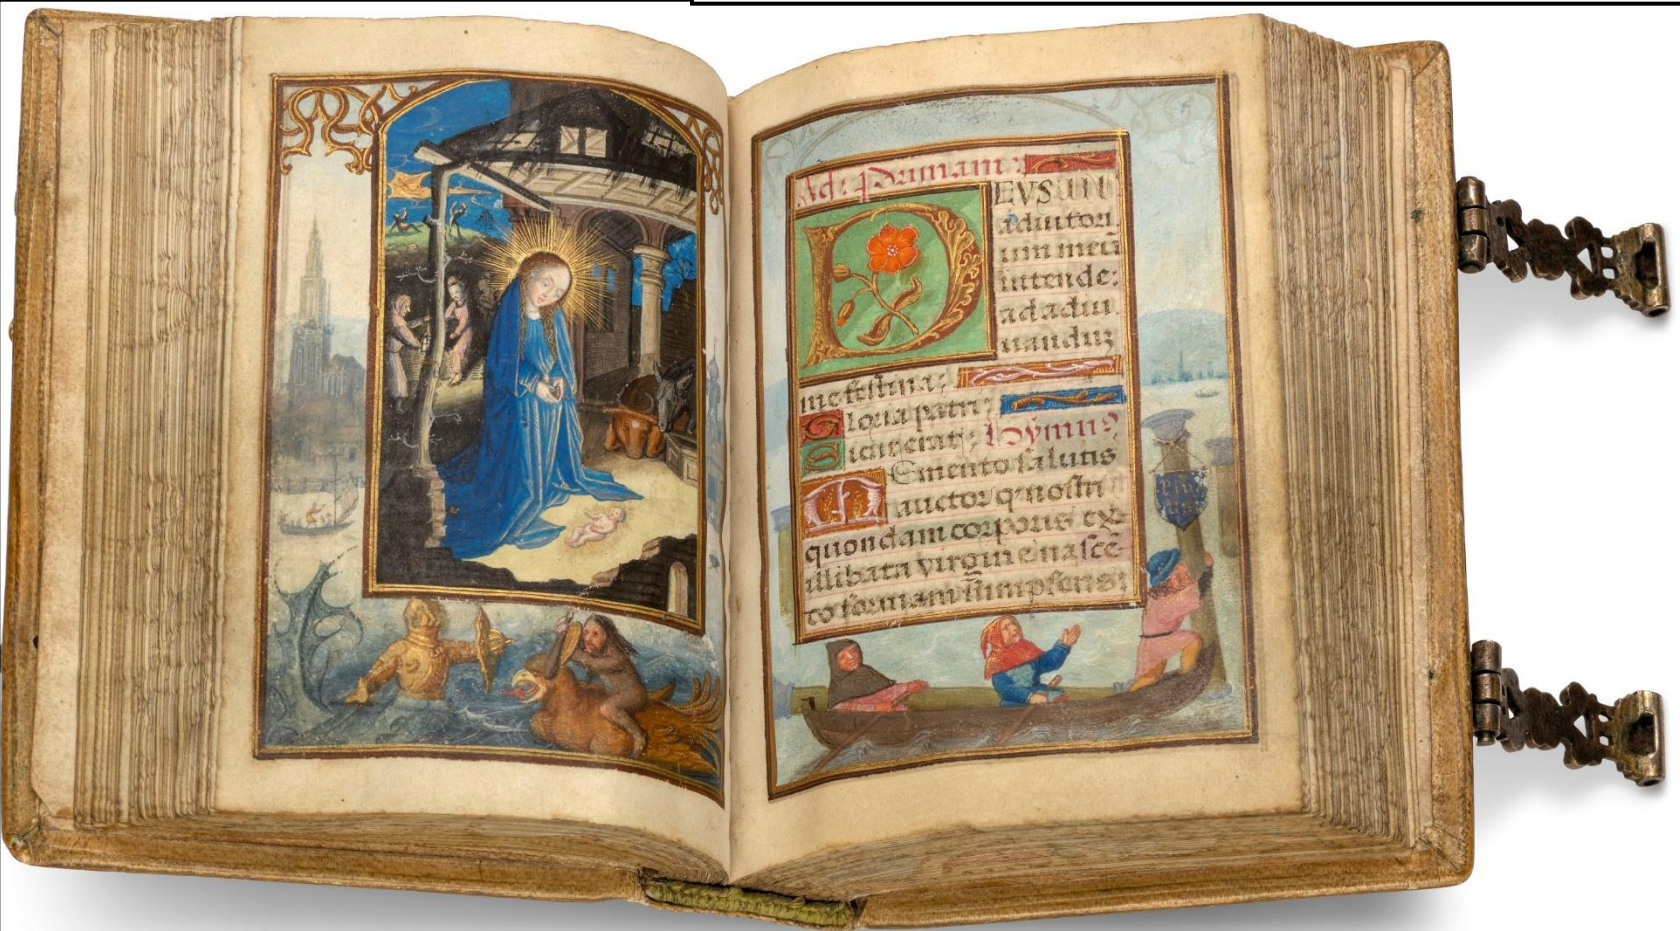 Ad: Primam:
DEUS IN
adiutori
um meū
intende:
ad adiu
uandūz
me festina:
Gloria patri:
Sicut erat: Hymnus,
Memento salutis
auctor q nostri
quondam corporis ex
illibata virgine nascē
to formam